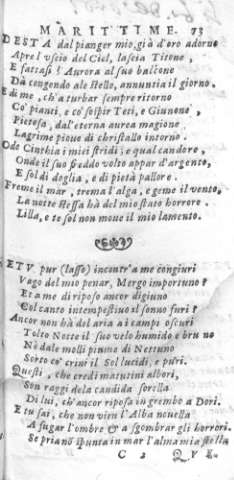 MARITTIME. 73
DESTA dal pianger mio, già d'oro adorno
Apre l'vscio del Ciel, lascia Titone,
E fattasi l'Aurora al suo balcone
Dà congedo ale stelle, annuntia il giorno.
E di me, ch'a turbar sempre ritorno
Co' pianti, e co' sospir Teti, e Giunone,
Pietosa, dal'eterna aurea magione
Lagrime pioue di christallo intorno.
Ode Cinthia i miei stridi; e qual candore,
Onde il suo freddo volto appar d'argento,
E sol di doglia, e di pietà pallore.
Freme il mar, trema l'alga, e geme il vento,
La notte stessa hà del mio stato horrore.
Lilla, e te sol non moue il mio lamento.
ET V pur (lasso) incontr'a me congiuri
Vago del mio penar, Mergo importuno?
Et a me di riposo ancor digiuno
Col canto intempestiuo il sonno furi?
Ancor non hà del aria ai campi oscuri
Tolto Notte il suo velo humido e bruno
Nè dale molli piume di Nettuno
Sorto co' crini il Sol lucidi, e puri.
Questi, che credi matutini albori,
Son raggi dela candida sorella
Di lui, ch'ancor riposa in grembo a Dori.
E tu sai, che non vien l'Alba nouella
A fugar l'ombre & a sgombrar gli horrori.
Se pria non spunta in mar l'alma mia stella
C 2